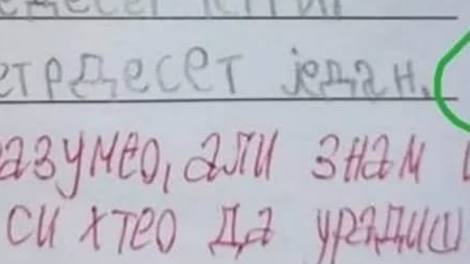 етрдесет један.
азумео, али знам
си хтео да урадиш